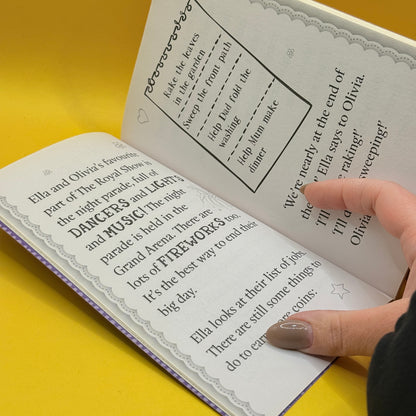 Ella and Olivia's favourite
part of The Royal Show is
the night parade, full of
DANCERS and LIGHTS
and MUSIC! The night
parade is held in the
Grand Arena. There are
lots of FIREWORKS too.
It's the best way to end their
big day.
Ella looks at their list of jobs.
There are still some things to
do to earn more coins:
Rake the leaves
in the garden
Sweep the front path
Help Dad fold the
washing
Help Mum make
dinner
'We're nearly at the end of
Ella says to Olivia.
'I'll raking!'
'I'll d sweeping!'
Olivia